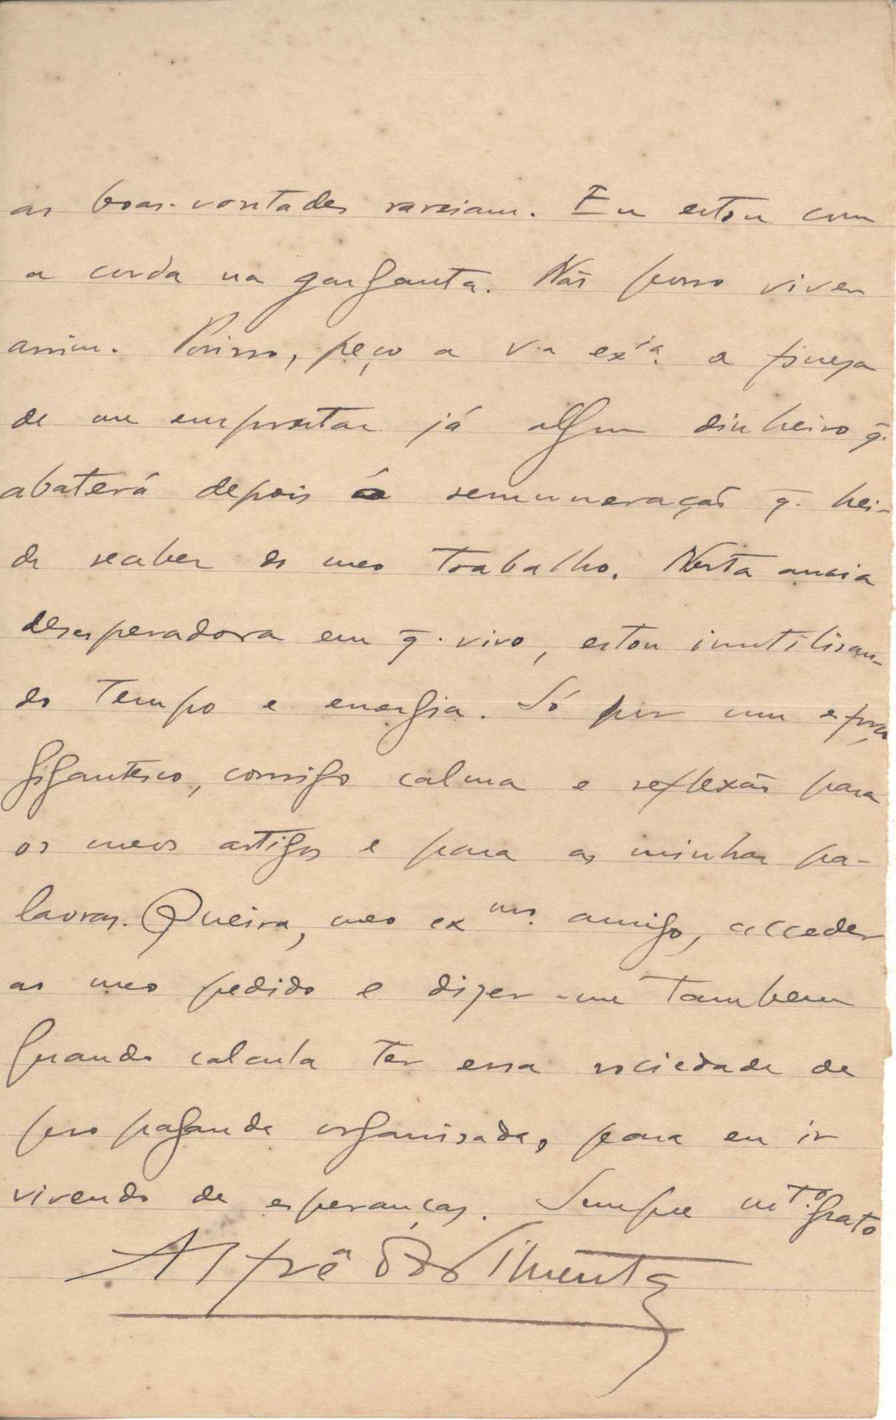 as boas-vontades rareiam. Eu estou com
a corda na garganta. Não posso viver
assim. Porisso, peço a v.a exia. a fineza
de me emprestar já algum dinheiro q.
abaterá depois á remuneração q. hei-
de receber do meo trabalho. Nesta ancia
desesperadora em q. vivo, estou inutilisan-
do tempo e energia. Só por um esforço
gigantesco, consigo calma e reflexão para
os meos artigos e para as minhas pa-
lavras. Queira, meo exmo. amigo, acceder
ao meo pedido e dizer-me tambem
quando calcula ter essa sociedade de
propaganda organisada, para eu ir
vivendo de esperanças. Sempre mto. grato
Alfrêdo Pimenta